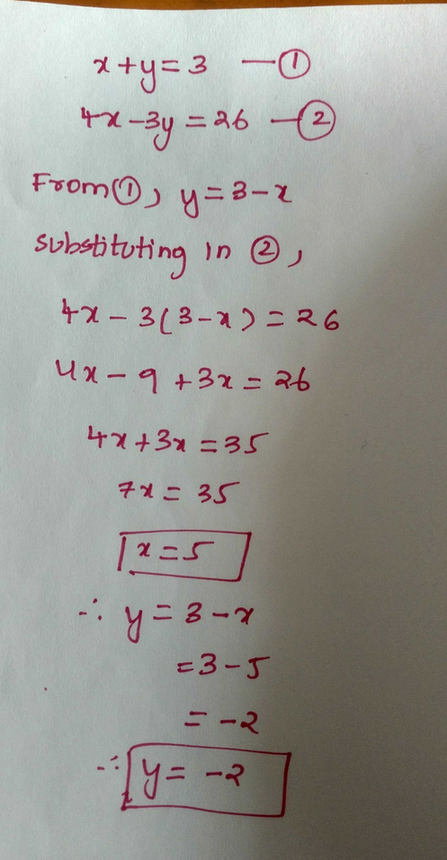 x+y=3 —①
4x-3y=26 —②
From①, y=3-x
substituting in ②,
4x-3(3-x)=26
4x-9+3x=26
4x+3x=35
7x=35
x=5
∴ y=3-x
=3-5
=-2
∴ y=-2